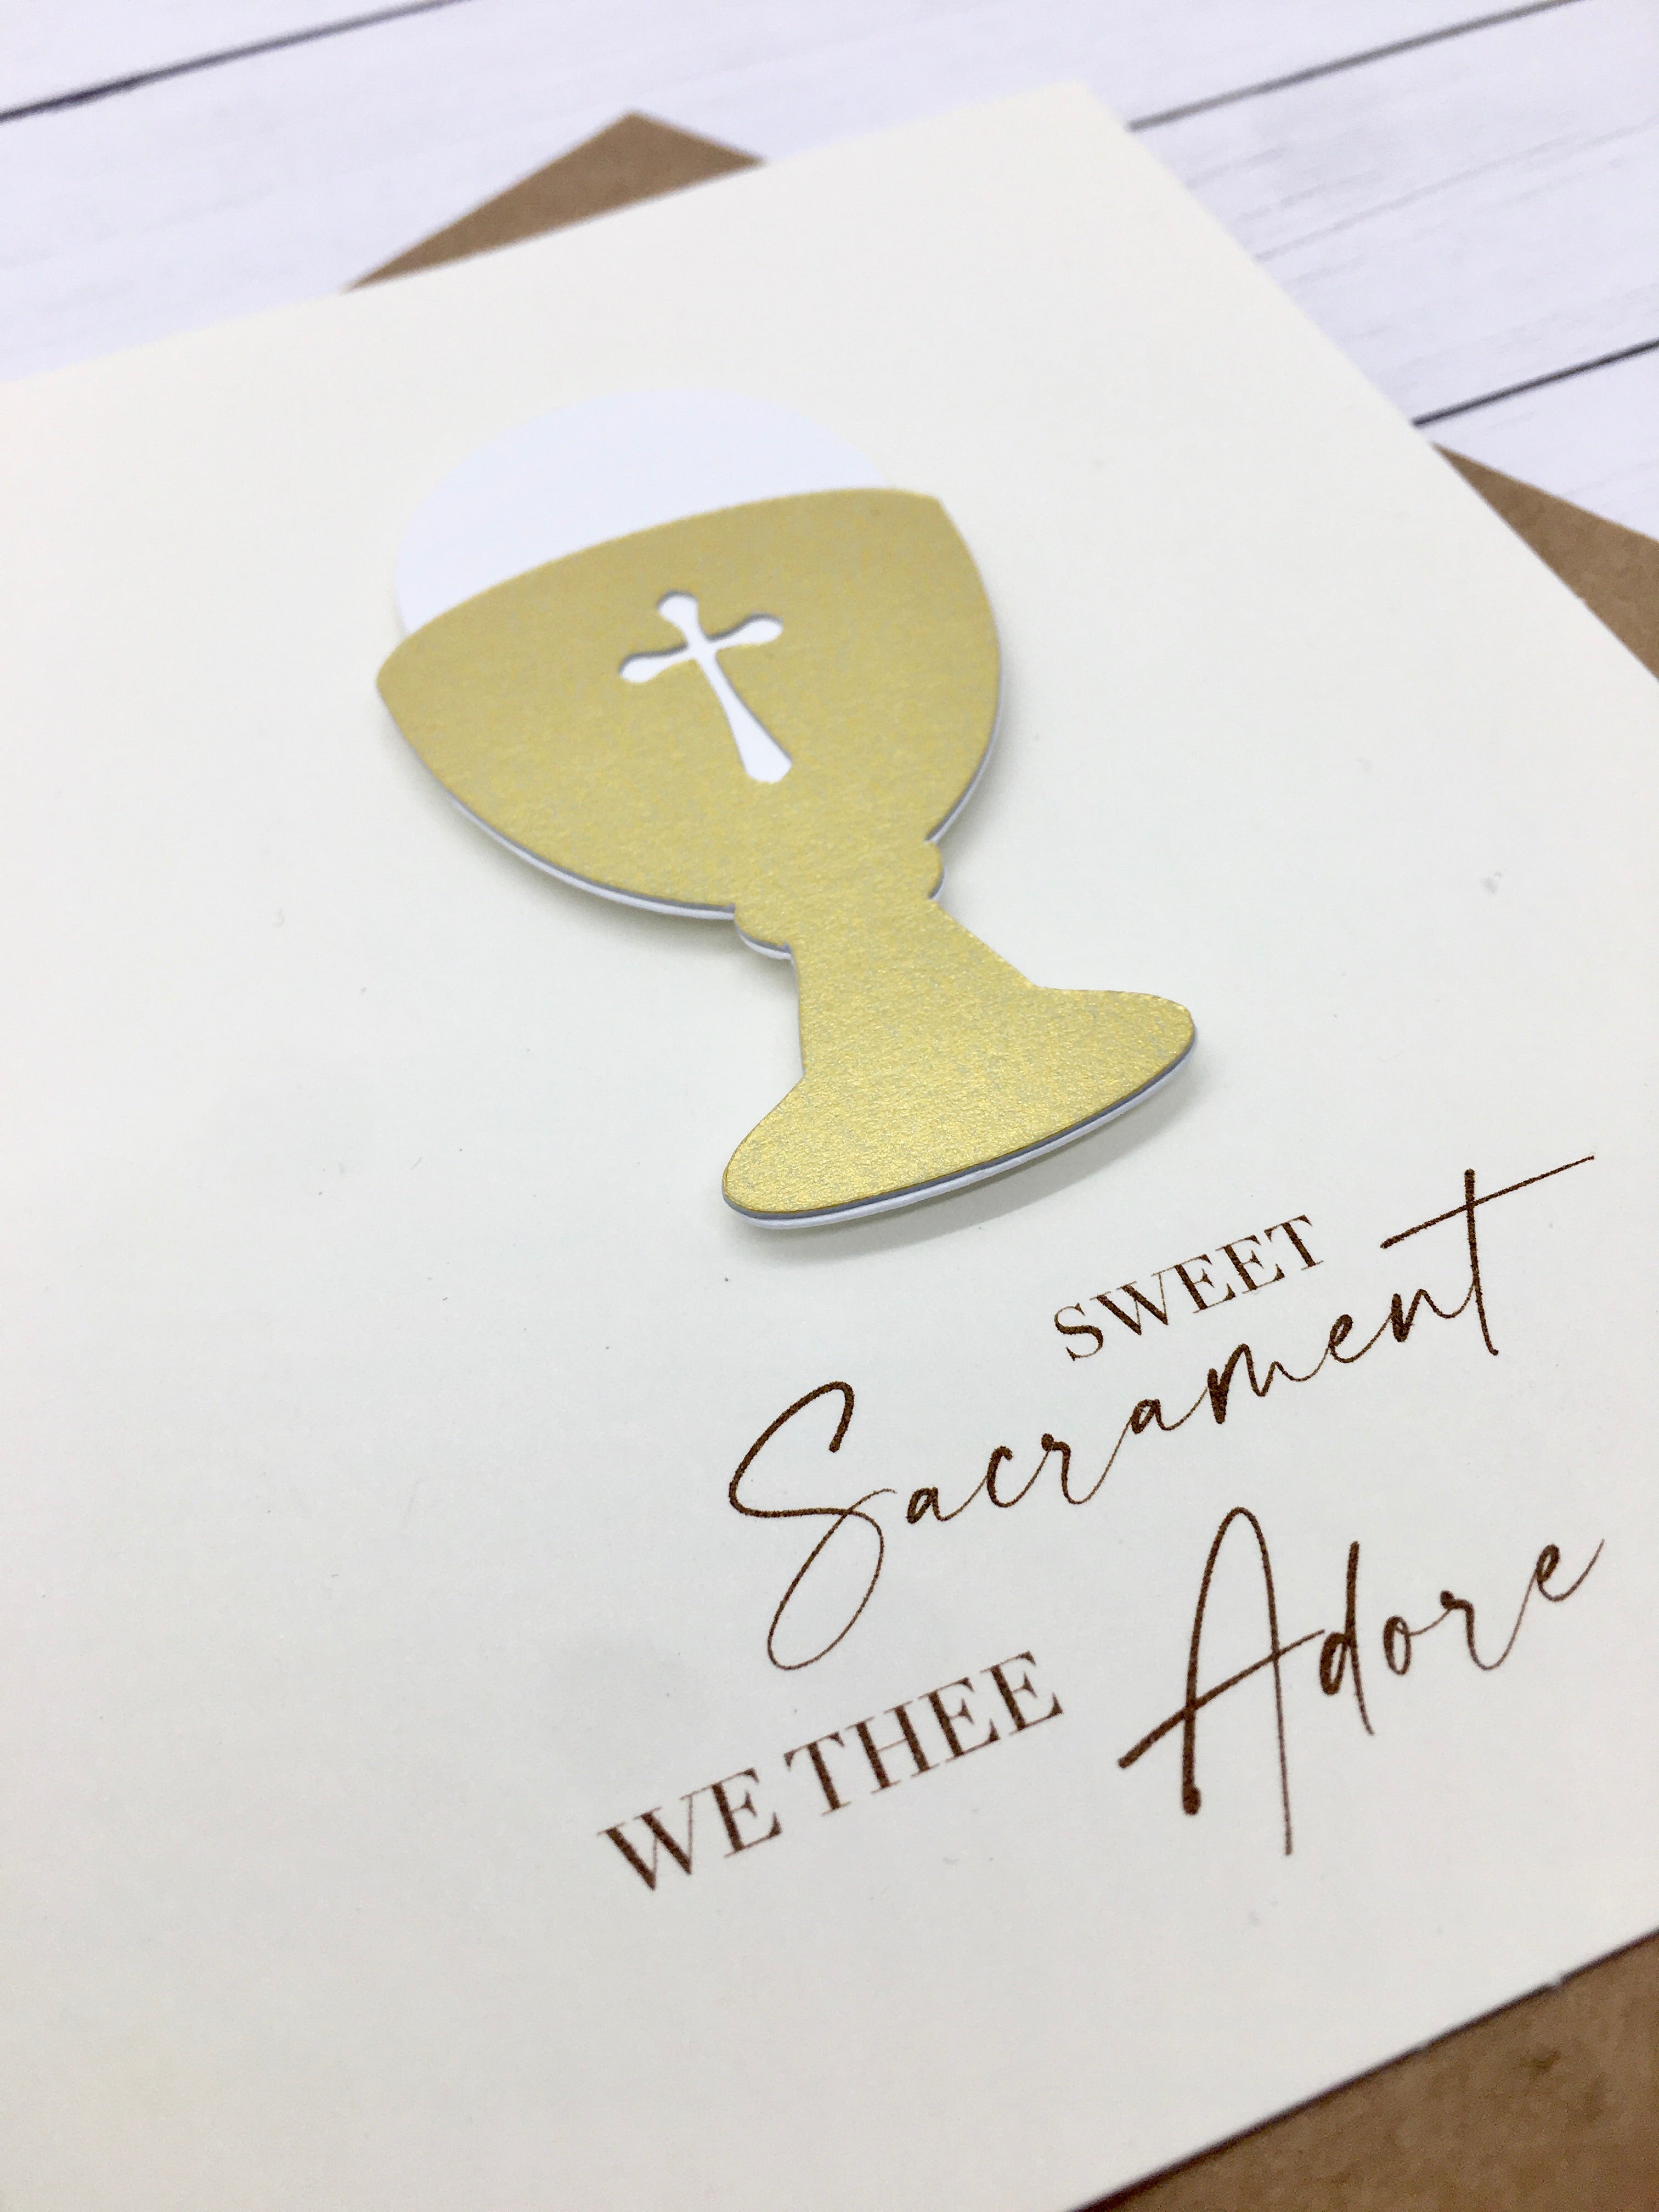 SWEET
Sacrament
WE THEE Adore